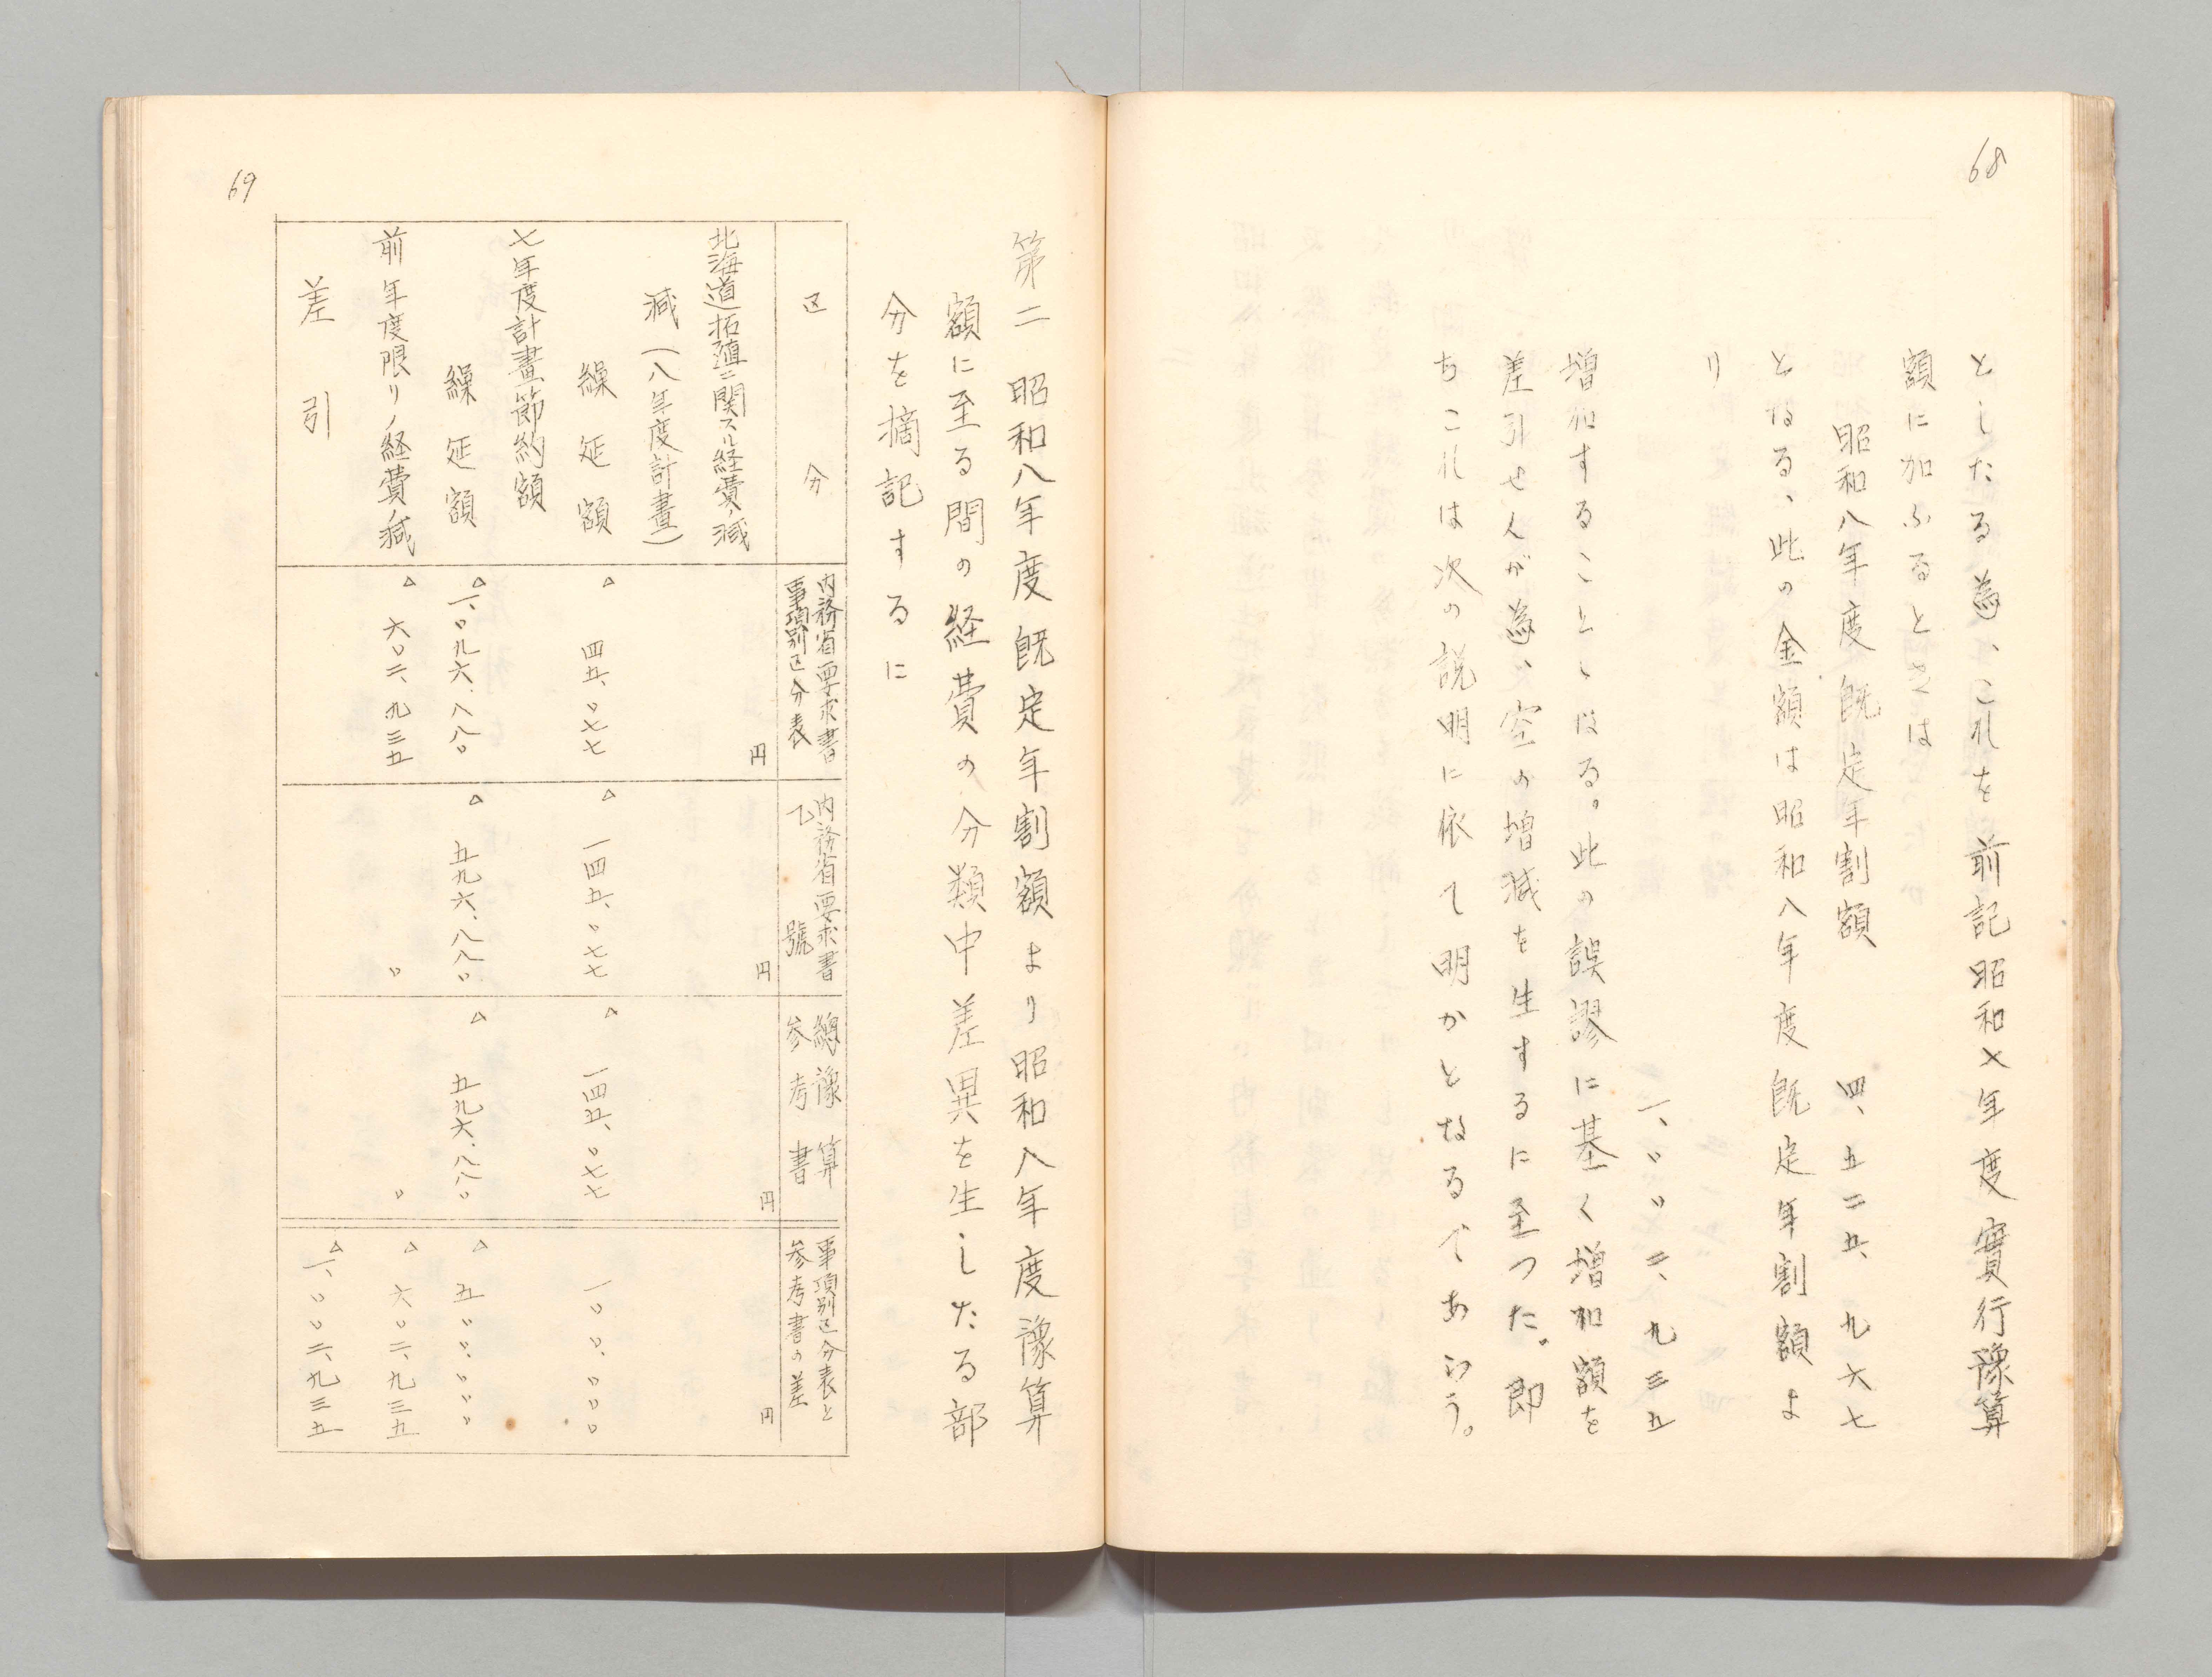 68
としたる為、これを前記昭和七年度實行豫算
額に加ふるときは
昭和八年度既定年割額　四、五二五、九六七
となる、此の金額は昭和八年度既定年割額よ
り
一、〇〇二、九三五
増加することゝなる。此の誤謬に基く増加額を
差引せんが為、空の増減を生するに至つた。即
ちこれは次の説明に依て明かとなるであらう。
第二　昭和八年度既定年割額より昭和八年度豫算
額に至る間の経費の分類中差異を生したる部
分を摘記するに
区　分
内務省要求書
事項別区分表
内務省要求書
乙　號
總豫算
参考書
事項別区分表と
参考書の差
円　円　円　円
北海道拓殖ニ関スル経費ノ減
減（八年度計畫）
繰延額　△　四五、〇七七　△　一四五、〇七七　△　一四五、〇七七　一〇〇、〇〇〇
七年度計畫節約額
繰延額　△　一、〇九六、八八〇　△　五九六、八八〇　△　五九六、八八〇　△　五〇〇、〇〇〇
前年度限リノ経費ノ減　△　六〇二、九三五　〇　〇　△　六〇二、九三五
差引　△　一、〇〇二、九三五
69